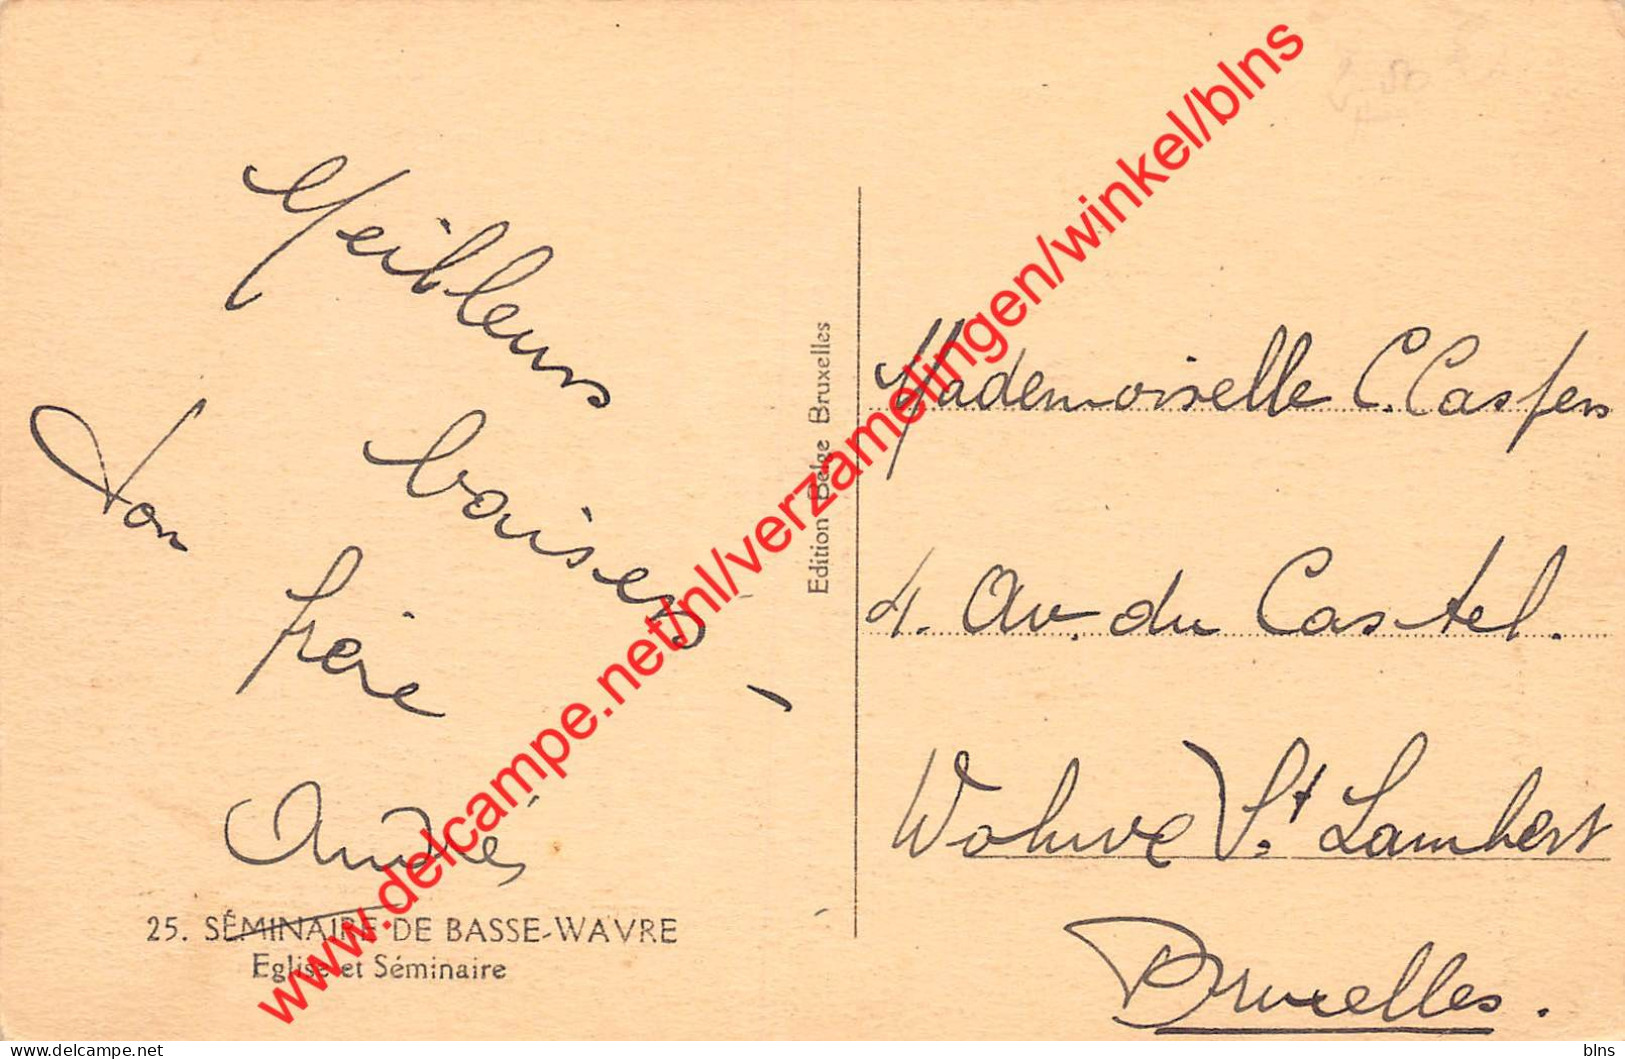 Meilleurs
baisers
Ton
frère
André
25. SÉMINAIRE DE BASSE-WAVRE
Eglise et Séminaire
Edition Belge Bruxelles
Mademoiselle C. Caspers
4. Av. du Castel.
Woluwe St Lambert
Bruxelles.
www.delcampe.net/nl/verzamelingen/winkel/blns
blns